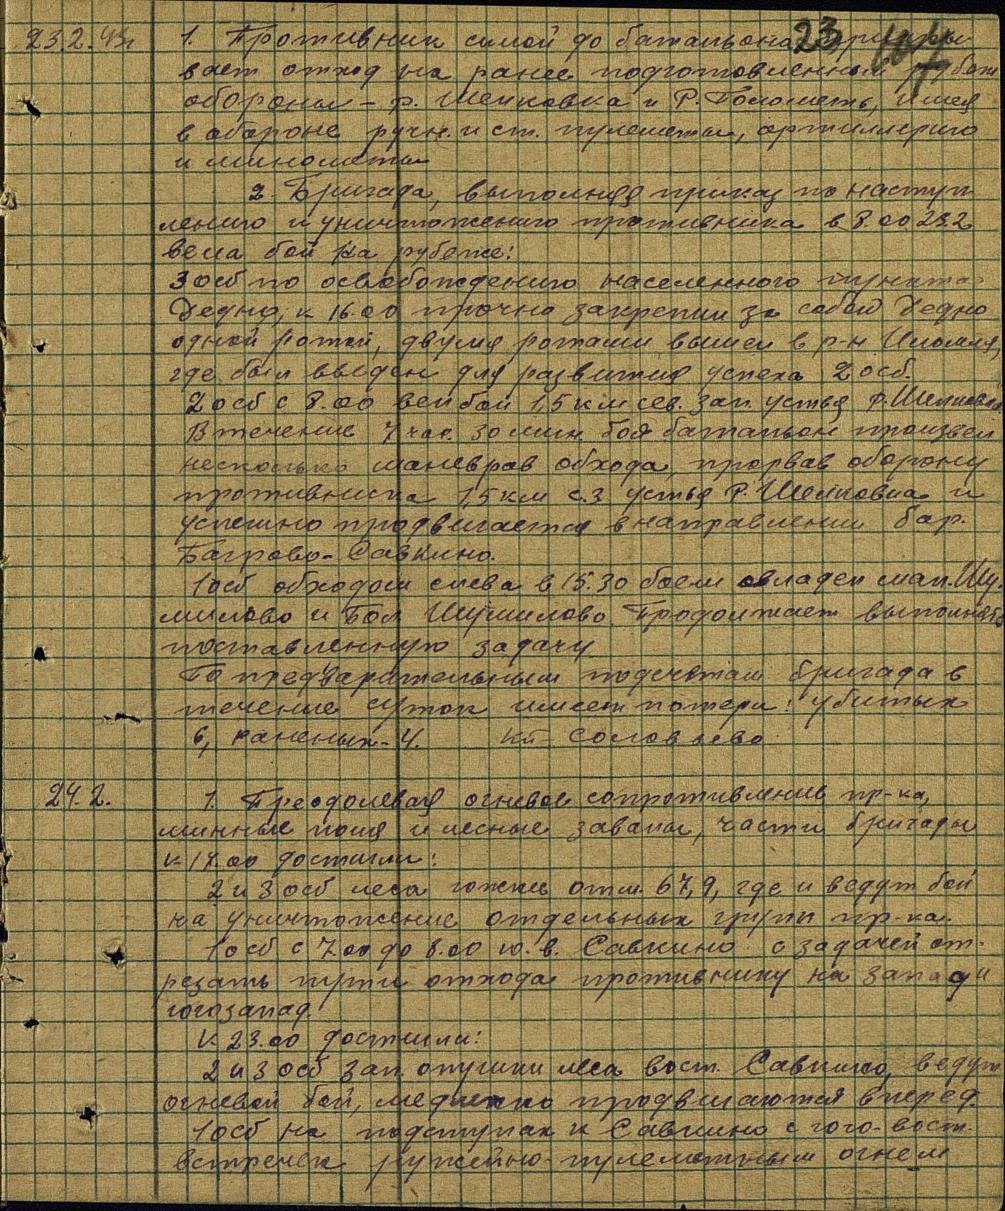 23
23.2.43г. 1. Противник силой до батальона
вает отход на ранее подготовленный рубеж
обороны – р. Шелковка и Р. Полометь, имея
в обороне ручн. и ст. пулеметы, артиллерию
и минометы
2. Бригада, выполняя приказ по наступ
лению и уничтожению противника в 8.00 23.2
вела бой на рубеже:
3 осб по освобождению населенного пункта
Дедно, к 16.00 прочно закрепил за собой Дедно
одной ротой, двумя ротами вышел в р-н Иломля,
где был введен для развития успеха 2 осб.
2 осб с 8.00 вел бой 1,5 км сев. зап. устья р. Шелковка
В течение 7 час. 30 мин. боя батальон произвел
несколько маневров обхода, прорвав оборону
противника 1,5 км с.з. устья Р. Шелковка и
успешно продвигается в направлении бар.
Багрово-Савкино.
1 осб обходом слева в 15.30 боем овладел мал. Шу
милово и Бол Шумилово. Продолжает выполнять
поставленную задачу
По предварительным подсчетам бригада в
течение суток имеет потери: убитых
6, раненых – 4. КП Соловьево
24.2. 1. Преодолевая огневое сопротивление пр-ка,
минные поля и лесные завалы, части бригады
к 17.00 достигли:
2 и 3 осб леса южнее отм. 67,9, где и ведут бой
на уничтожение отдельных групп пр-ка.
1 осб с 7.00 до 8.00 ю.-в. Савкино с задачей от-
резать пути отхода противнику на запад и
югозапад.
К 23.00 достигли:
2 и 3 осб зап. опушки леса вост. Савкино, ведут
огневой бой, медленно продвигаются вперед.
1 осб на подступах к Савкино с юго-вост.
встречен ружейно-пулеметным огнем